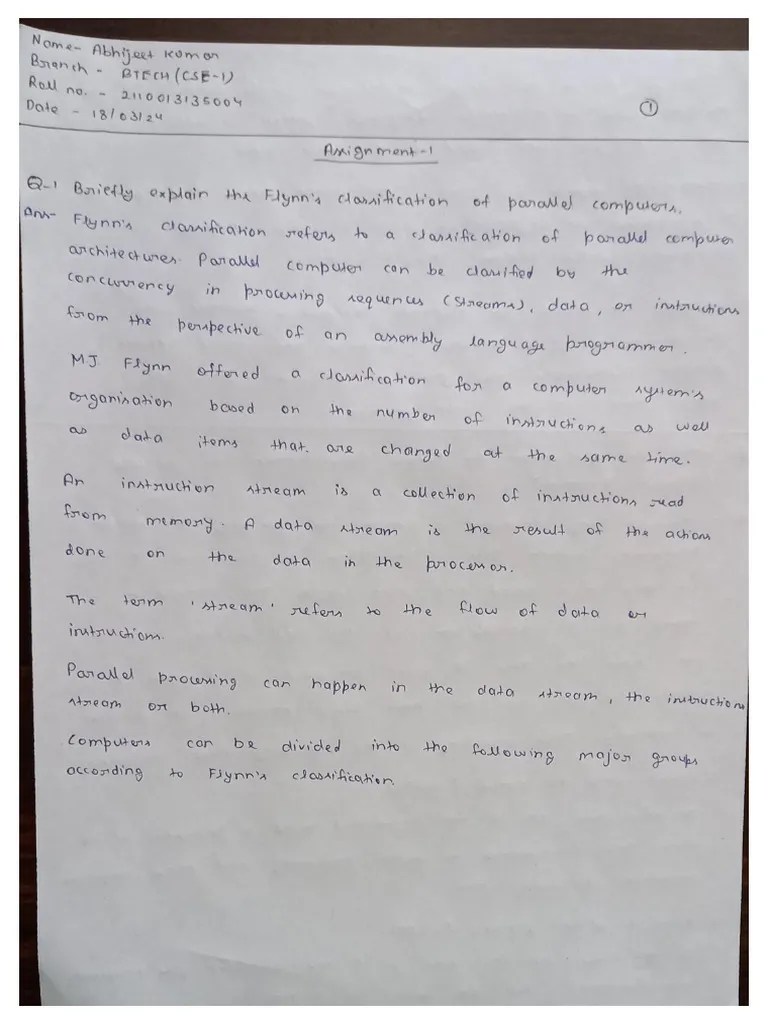 Name- Abhijeet Kumar
Branch - BTECH (CSE-1)
Roll no. - 2110013135004
Date - 18/03/24
1
Assignment-1
Q-1 Briefly explain the Flynn's classification of parallel computers.
Ans- Flynn's classification refers to a classification of parallel computer
architectures. Parallel computer can be classified by the
concurrency in processing sequences (streams), data, or instructions
from the perspective of an assembly language programmer.
M.J. Flynn offered a classification for a computer system's
organisation based on the number of instructions as well
as data items that are changed at the same time.
An instruction stream is a collection of instructions read
from memory. A data stream is the result of the actions
done on the data in the processor.
The term 'stream' refers to the flow of data or
instructions.
Parallel processing can happen in the data stream, the instruction
stream or both.
Computers can be divided into the following major groups
according to Flynn's classification.